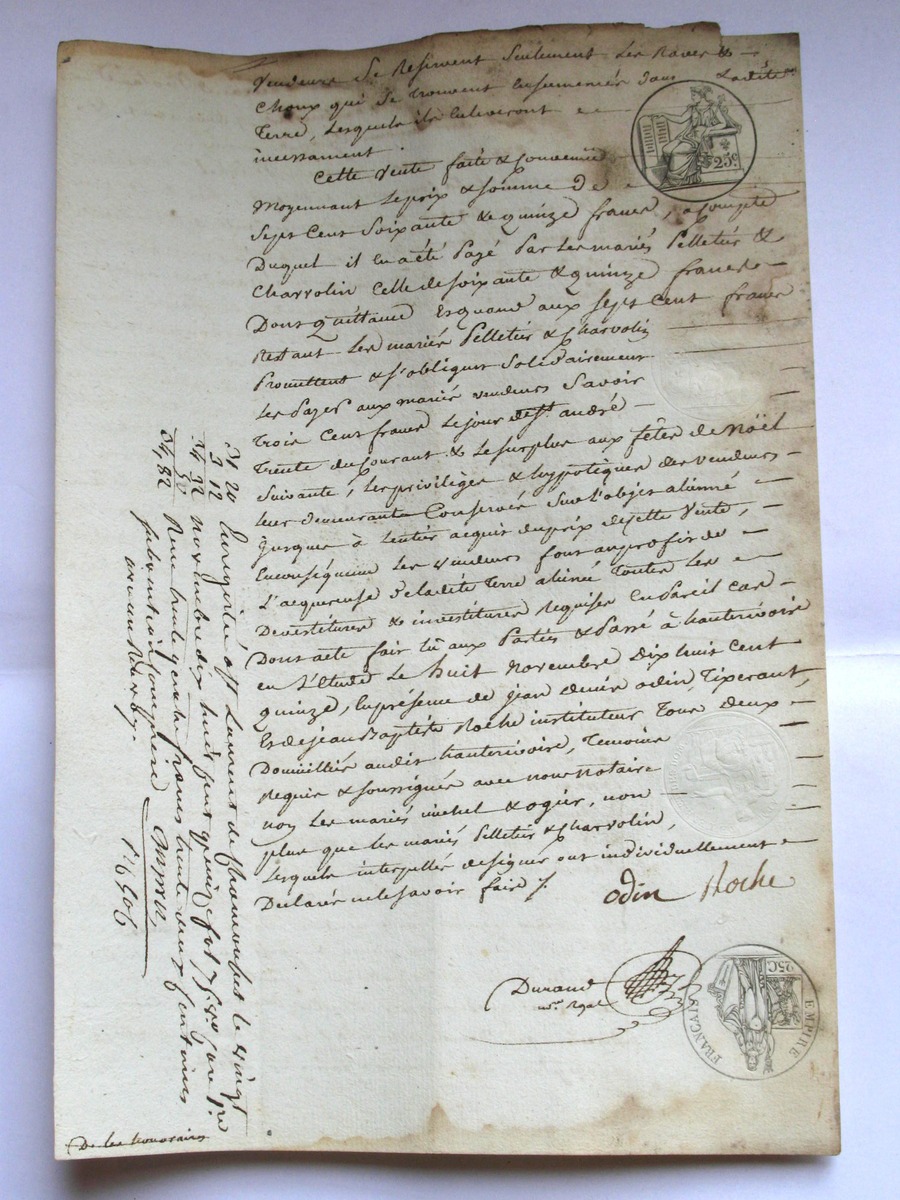 Vendeurs se Reservent Seulement Les Raves &
Choux qui se trouvent Ensemencés dans Ladite
Terre, Lesquels ils Enleveront
incessament.
Cette Vente faite & Convenue
Moyennant Le prix & Somme De
Sept Cent Soixante & quinze francs, a Compte
Duquel il En a été Payé Par Les mariés Pelletier &
Charvolin Celle de Soixante & quinze francs
Dont Quittance Et quand aux Sept Cent francs
Restant Les mariés Pelletier & Charvolin
Promettent & s'obligent Solidairement
Les Payer aux mariés vendeurs Savoir
Trois Cent francs Le jour de St André
Trente du Courant & Le Surplus aux fêtes de Noël
Suivante, Les privileges & hypoteques des vendeurs
Leur demeurants Conservés Sur L'objet aliénné
Jusques à L'entier acquit du prix de cette Vente,
En conséquence Les vendeurs font au profit de
L'acquereuse De La dite Terre aliéné Toutes Les
Devestitures & investitures Requises En Pareil Cas
Dont acte fait Lû aux Parties & Passé à hauterivoire
en L'étude Le huit Novembre Dix huit Cent
quinze, En présence de Jean odin, Tixerant,
Et de Jean Baptiste Roche instituteur Tous Deux
Domicilliés audit hauterivoire, Temoins
Requis & Soussignés avec nous notaire
non Les mariés michel & ogier, non
plus que Les mariés Pelletier & Charvolin,
Lesquels interpellés de signer ont individuellement
Declarés ne le Savoir faire /.
odin Roche
Durand
nre. Royal
25c.
25C
EMPIRE
FRANÇAIS
31 20
3 12
34 32
50
34,82
Enregistré à St Laurent de Chamousset le vingt
novembre dix huit cent quinze fol 75
Reçu trente quatre francs trente deux Centimes
subvention comprise
De les honoraires